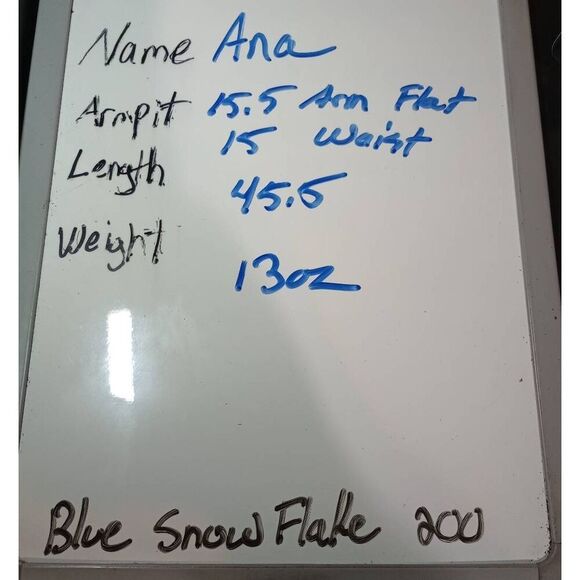 Name Ana
Armpit 15.5 Arm Flat
15 Waist
Length 45.5
Weight 13oz
Blue Snow Flake 200